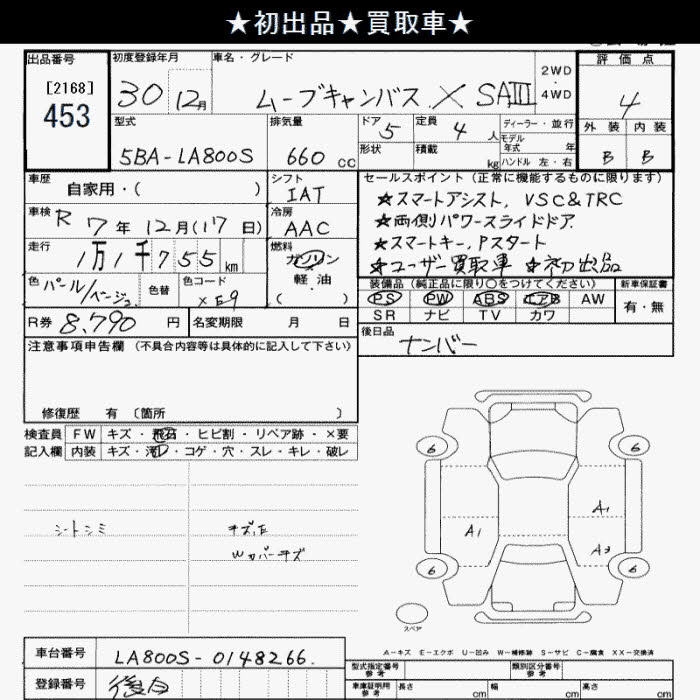 ★初出品★買取車★
出品番号
[2168]
453
初度登録年月
30 12月
車名・グレード
ムーブキャンバス X SAIII
2WD
・
4WD
評価点
4
外装 内装
B B
型式
5BA-LA800S
排気量
660 cc
ドア 5
形状
定員 4 人
積載 kg
ディーラー・並行
モデル
年式 年
ハンドル 左・右
車歴
自家用・( )
シフト
IAT
車検 R 7年 12月(17日)
冷房
AAC
走行
1万1千755 km
燃料
ガソリン
・
軽油
( )
色 パール/ベージュ 色替 色コード
XE9
R券 8,790 円 名変期限 月 日
セールスポイント (正常に機能するものに限ります)
★スマートアシスト, VSC&TRC
★両側パワースライドドア
★スマートキー, Pスタート
★ユーザー買取車 ★初出品
装備品 (純正品に限り○をつけてください) 新車保証書
PS PW ABS エアB AW
SR ナビ TV カワ
有・無
後日品
ナンバー
注意事項申告欄 (不具合内容等は具体的に記入して下さい)
修復歴 有 〔箇所 〕
検査員 FW キズ・飛石・ヒビ割・リペア跡・×要
記入欄 内装 キズ・汚レ・コゲ・穴・スレ・キレ・破レ
シートシミ
キズ,E
Wカバーキズ
6 6
A1
A1
A2
6 6
スペア
A-キズ E-エクボ U-凹み W-補修跡 S-サビ C-腐食 XX-交換済
車台番号 LA800S-0148266.
登録番号 後日
型式指定番号
参考
類別区分番号
参考
車庫証明用
参考
長さ cm 幅 cm 高さ cm